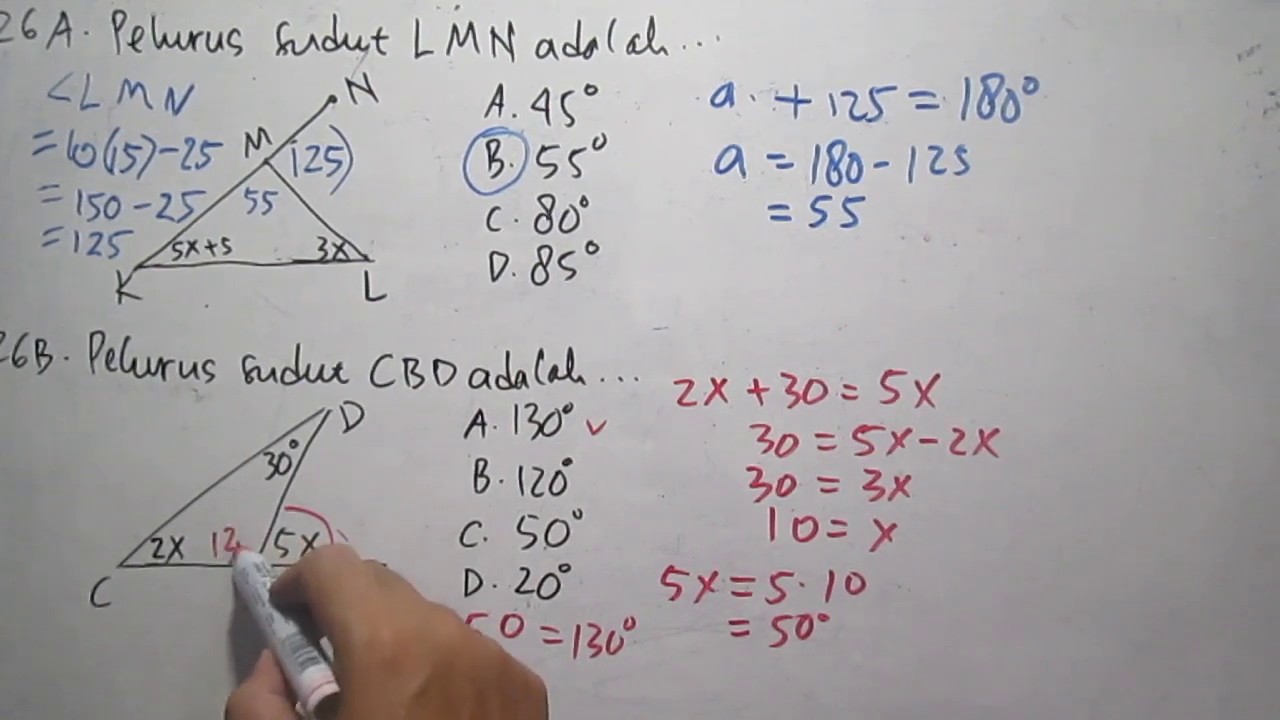 26A. Pelurus sudut LMN adalah...
<LMN
= 10(15)-25
= 150-25
= 125
N
M
125)
55
5x+5
3x
K
L
A. 45°
B. 55°
C. 80°
D. 85°
a + 125 = 180°
a = 180 - 125
= 55
26B. Pelurus sudut CBD adalah...
D
30°
2x
5x
C
A. 130° ✓
B. 120°
C. 50°
D. 20°
50 = 130°
2x + 30 = 5x
30 = 5x - 2x
30 = 3x
10 = x
5x = 5.10
= 50°